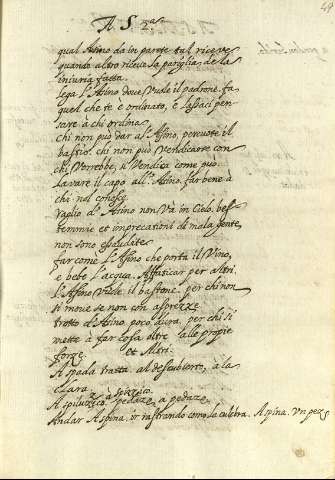 49
A S 2ª
qual Asino da in parete tal riceve
quando altro riceve la pariglia de la
iniuria fatta
lega l'Asino dove vuole il padrone. fa
quel che t'è ordinato, e lassaci pen
sare à chi ordina
chi non può dar al'Asino, percuote il
bastio. chi non può vendicarse con
chi vorrebbe, si vendica come può
lavare il capo all'Asino. far bene à
chi nol conosce
raglio d'Asino non và in Cielo. bes
temmie et imprecationi di mala gente
non sono essaudite
far come l'Asino che porta il vino,
e bebe l'acqua. Affaticar per altri.
l'Asino vuole il bastone. per chi non
si move se non con asprezze
trotto d'Asino poco dura, per chi si
mette à far cosa oltre alle propie
forze et Altri.
A spada tratta. al descuberto, à la
clara
A spiluzico. à spizzico. pedaze, a pedaze
Andar A spina. ir rastrando como la culebra. A spina. Un pez